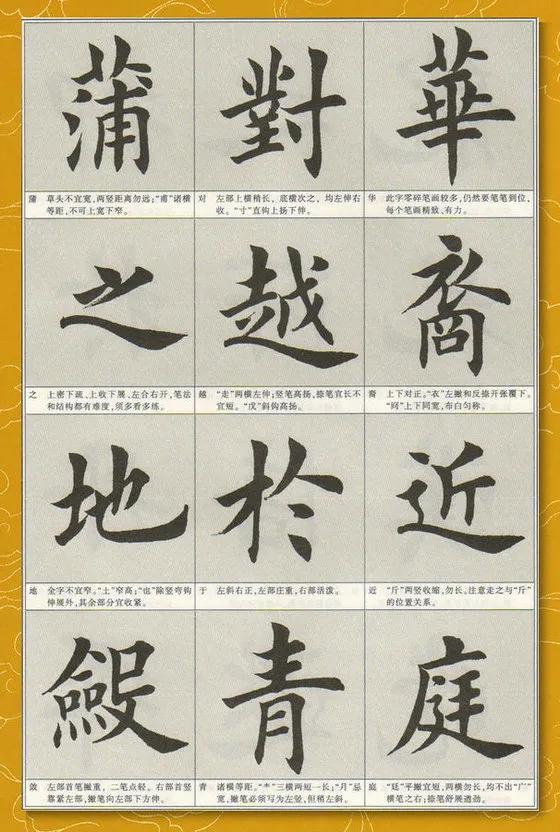 蒲 對 華
蒲 草头不宜宽,两竖距离勿远;“甫”诸横
等距,不可上宽下窄。
对 左部上横稍长,底横次之,均左伸右
收。“寸”直钩上扬下伸。
华 此字零碎笔画较多,仍然要笔笔到位,
每个笔画精致、有力。
之 越 裔
之 上密下疏、上收下展、左合右开,笔法
和结构都有难度,须多看多练。
越 “走”两横左伸;竖笔高扬,捺笔宜长不
宜短。“戉”斜钩高扬。
裔 上下对正。“衣”左撇和反捺开张覆下。
“冏”上下同宽,布白匀称。
地 於 近
地 全字不宜窄。“土”窄高;“也”除竖弯钩
伸展外,其余部分宜收紧。
于 左斜右正,左部庄重,右部活泼。
近 “斤”两竖收缩,勿长。注意走之与“斤”
的位置关系。
斂 青 庭
敛 左部首笔撇重,二笔点轻。右部首竖
靠紧左部,撇笔向左部下方伸。
青 诸横等距。“龶”三横两短一长;“月”忌
宽,撇笔必须写为左竖,但稍左斜。
庭 “廷”平撇宜短,两横勿长,均不出“广”
横笔之右;捺笔舒展遒劲。